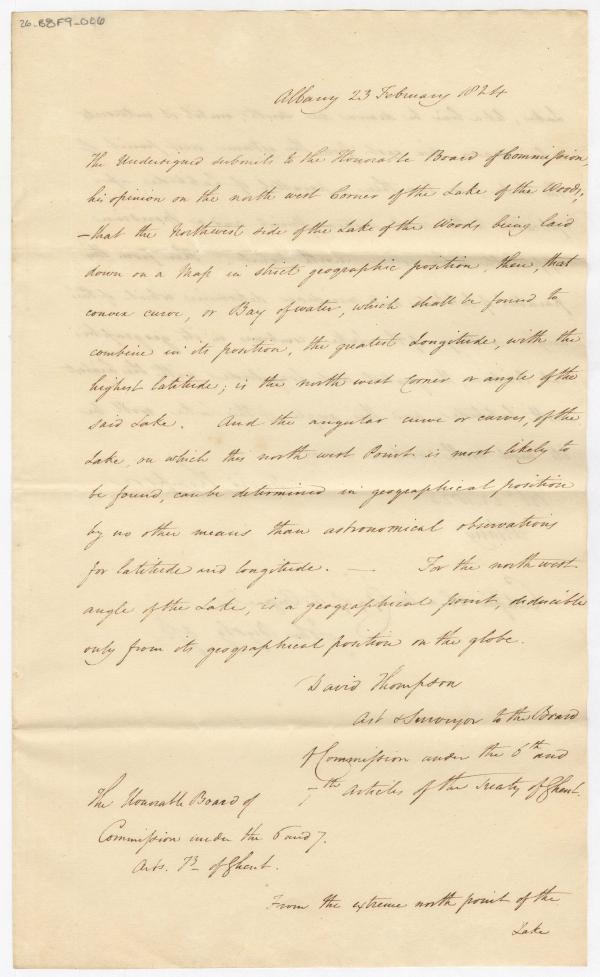 26-B8F9-006
Albany 23 February 1824
The Undersigned submits to the Honorable Board of Commission,
his opinion on the north west Corner of the Lake of the Woods,
-that the Northwest side of the Lake of the Woods being laid
down on a Map in strict geographic position, then, that
convex curve, or Bay of water, which shall be found to
combine in its position, the greatest Longitude, with the
highest latitude; is the north west Corner or angle of the
said Lake. And the angular curve or curves, of the
Lake, on which this north west Point is most likely to
be found, can be determined in geographical position
by no other means than astronomical observations
for latitude and longitude. — For the north west
angle of the Lake, is a geographical point, deducible
only from its geographical position on the globe.
David Thompson
Ast & Surveyor to the Board
of Commission under the 6th and
7th Articles of the Treaty of Ghent.
The Honorable Board of
Commission under the 6 and 7.
Arts. Ty of Ghent.
From the extreme north point of the
Lake